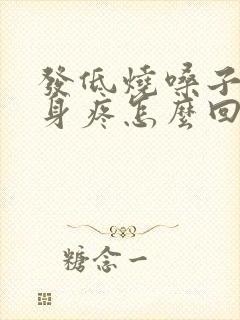 發低燒嗓子
身疼怎麼回
糖念一